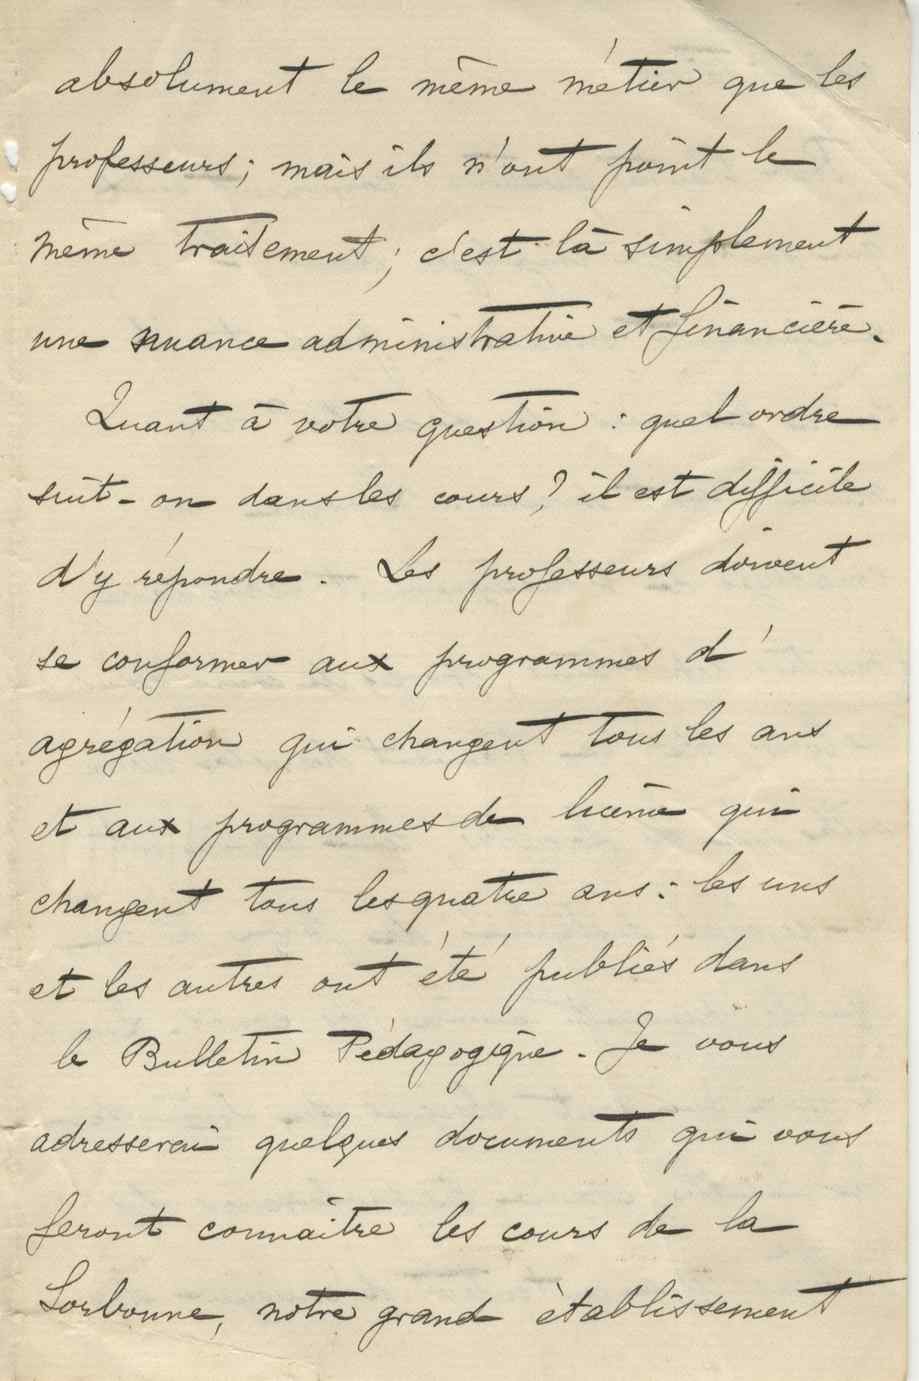 absolument le même métier que les
professeurs ; mais ils n'ont point le
même traitement ; c'est là simplement
une nuance administrative et financière.
Quant à votre question : quel ordre
suit-on dans les cours ? il est difficile
d'y répondre. Les professeurs doivent
se conformer aux programmes d'
agrégation qui changent tous les ans
et aux programmes de licence qui
changent tous les quatre ans : les uns
et les autres ont été publiés dans
le Bulletin Pédagogique. Je vous
adresserai quelques documents qui vous
feront connaître les cours de la
Sorbonne, notre grand établissement